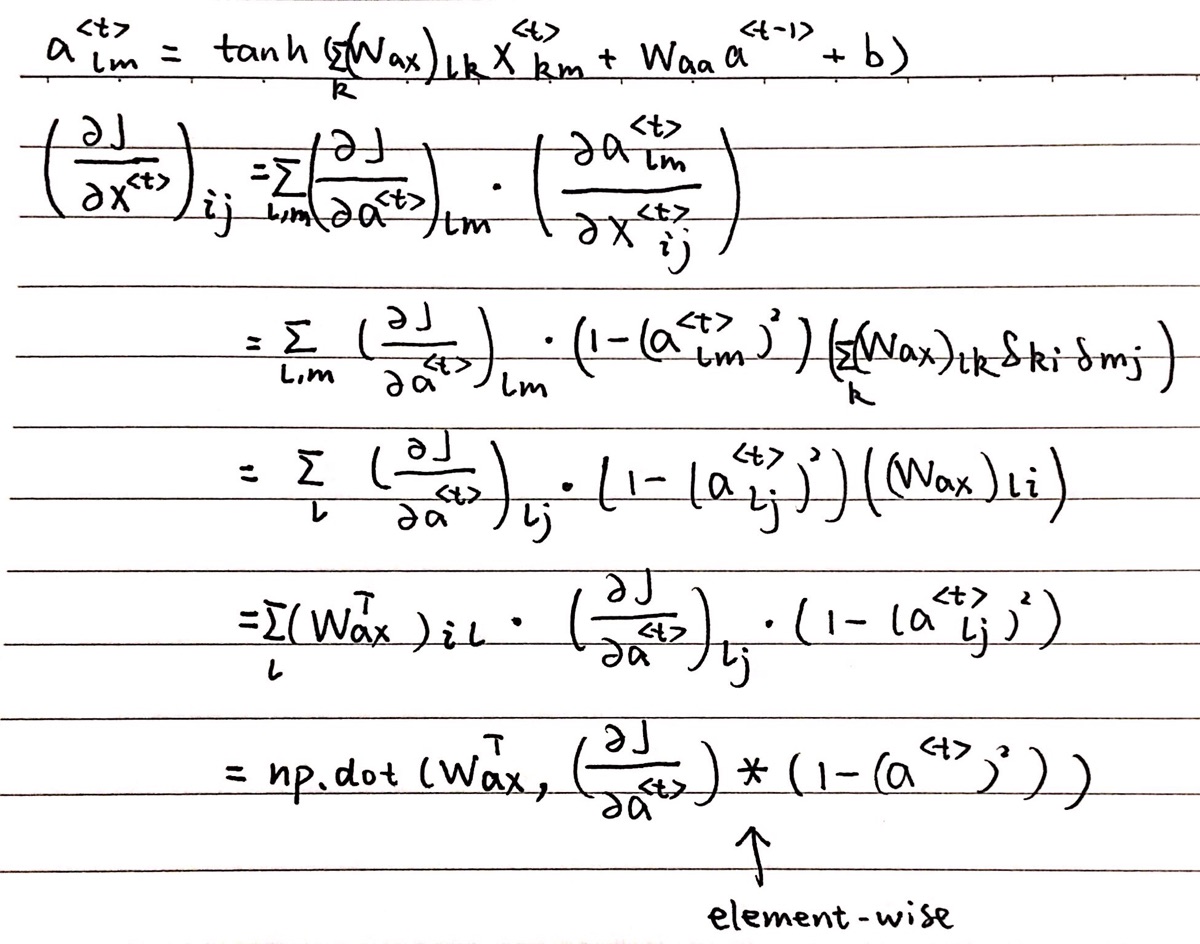 a^{<t>}_{lm} = tanh (Σ_k (Wax)_{lk} x^{<t>}_{km} + Waa a^{<t-1>} + b)
(∂J/∂x^{<t>})_{ij} = Σ_{l,m} (∂J/∂a^{<t>})_{lm} · (∂a^{<t>}_{lm}/∂x^{<t>}_{ij})
= Σ_{l,m} (∂J/∂a^{<t>})_{lm} · (1-(a^{<t>}_{lm})²) (Σ_k (Wax)_{lk} δ_{ki} δ_{mj})
= Σ_l (∂J/∂a^{<t>})_{lj} · (1-(a^{<t>}_{lj})²) ((Wax)_{li})
= Σ_l (Wax^T)_{il} · (∂J/∂a^{<t>})_{lj} · (1-(a^{<t>}_{lj})²)
= np.dot (Wax^T, (∂J/∂a^{<t>}) * (1-(a^{<t>})²))
↑
element-wise